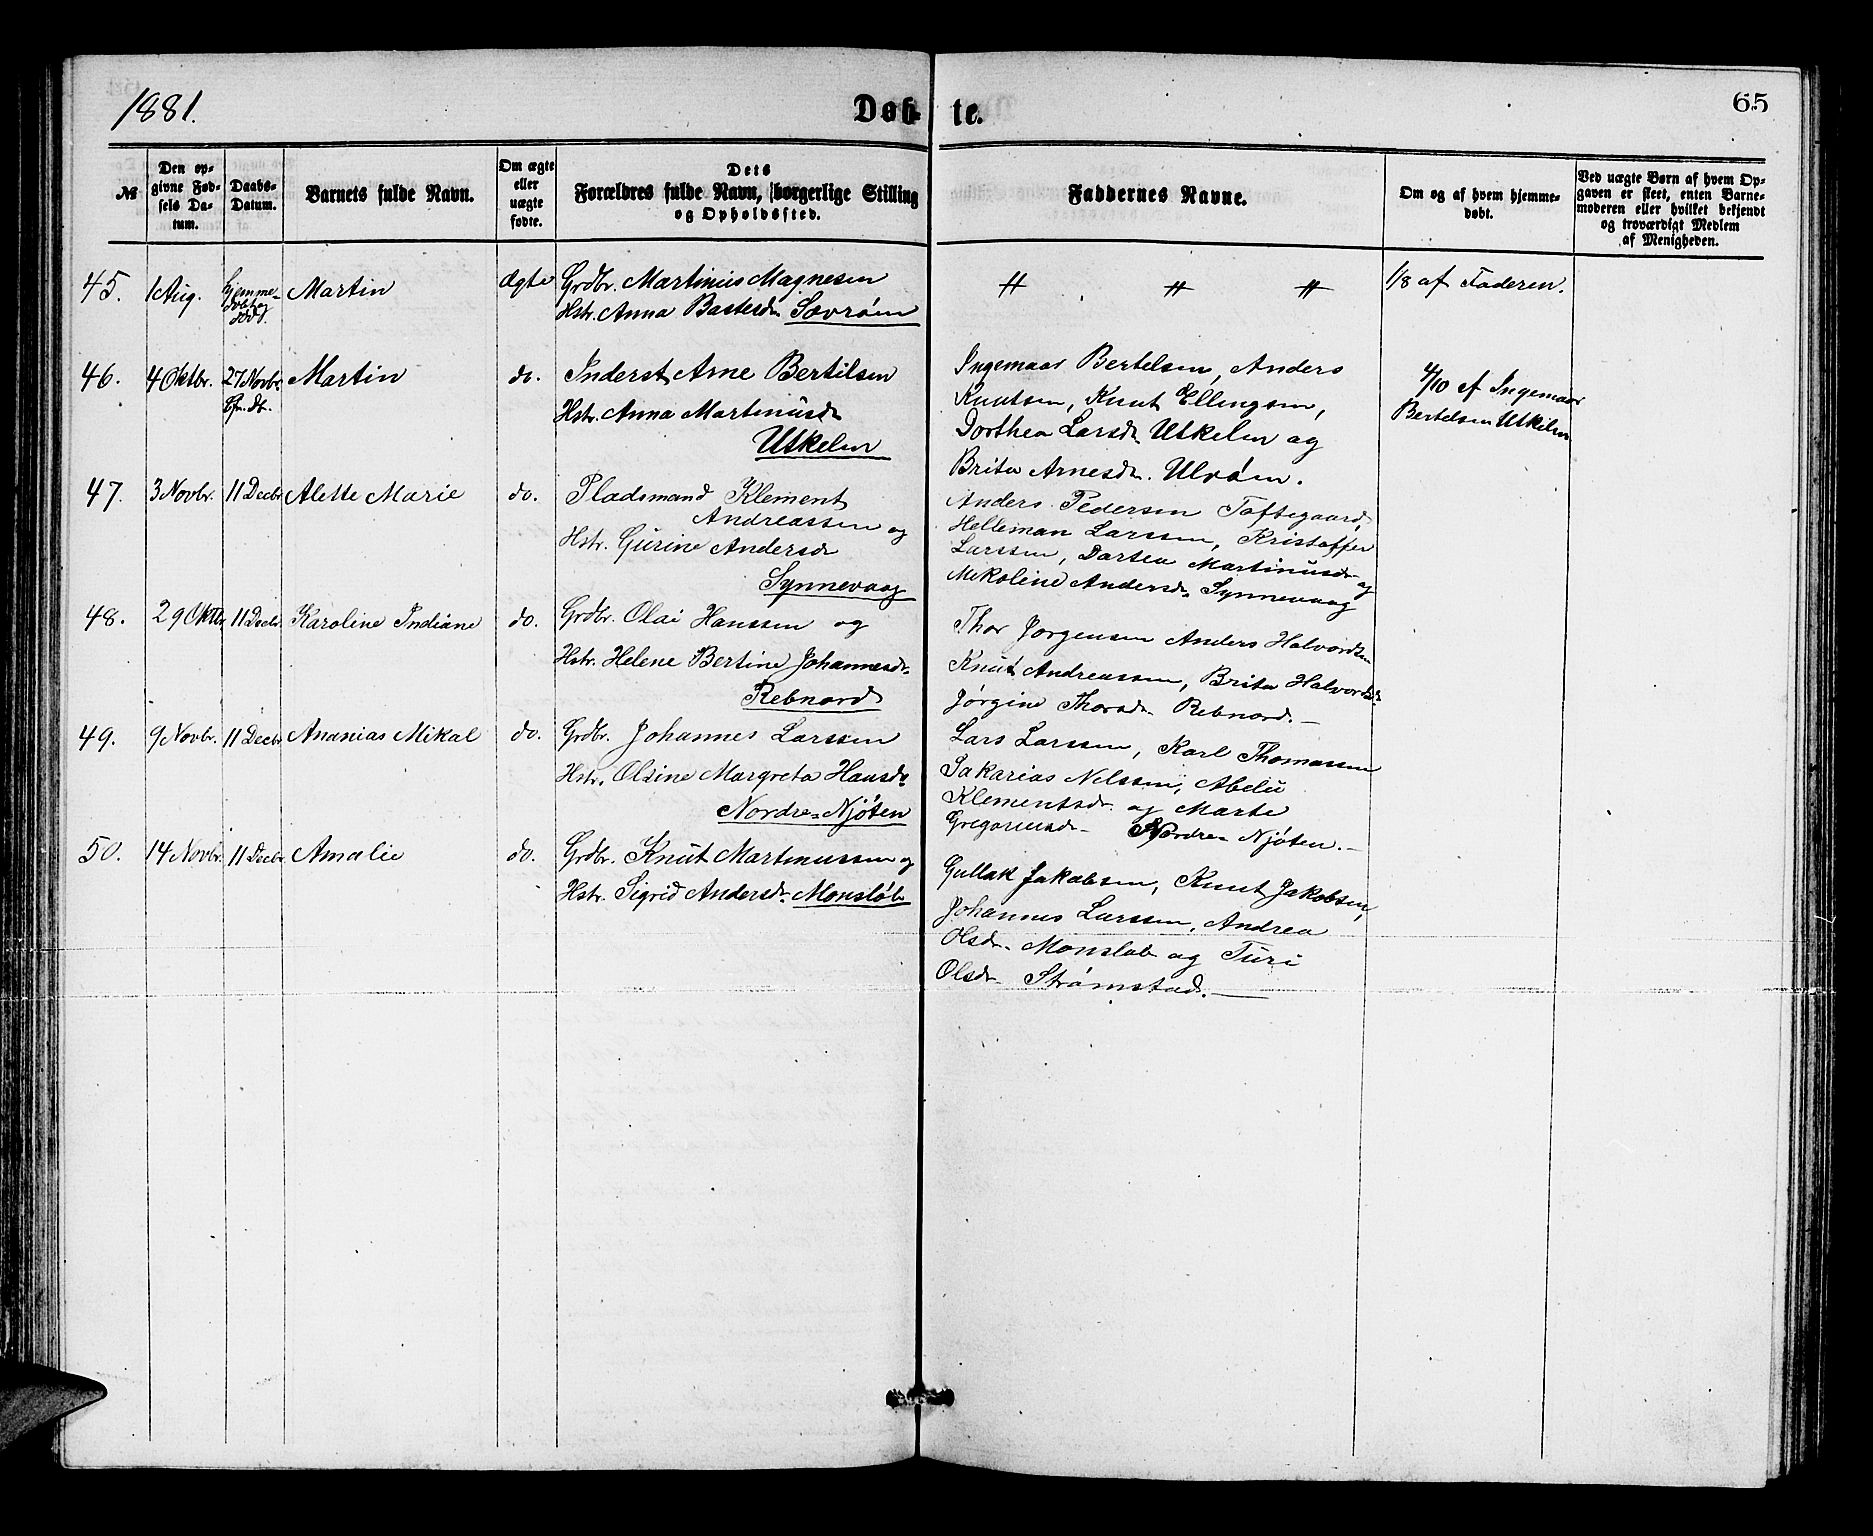 1881.
Døb- te.
65
№
Den op-
givne Fød-
sels Da-
tum.
Daabs-
Datum.
Barnets fulde Navn.
Om ægte
eller
uægte
fødte.
Dets
Forældres fulde Navn, borgerlige Stilling
og Opholdssted.
Faddernes Navne.
Om og af hvem hjemme-
døbt.
Ved uægte Børn af hvem Op-
gaven er skeet, enten Barne-
moderen eller hvilket bekjendt
og troværdigt Medlem
af Menigheden.
45. 1 Aug. Hjemme-
døbt og
død.
Martin
Ægte
Grdbr. Martinus Magnesen
Hstr. Anna Bastesdr. Sævrøen
〃 〃 〃
1/8 af Faderen.
46. 4 Oktbr. 27 Novbr.
Martin
do.
Inderst Arne Bertilsen
Hstr. Anna Martinusdr.
Utkelen
Ingemaar Bertelsen, Anders
Knutsen, Knut Ellingsen,
Dorthea Larsdr. Utkelen og
Brita Arnesdr. Ulvøen.
4/10 af Ingemaar
Bertelsen Utkelen
47. 3 Novbr. 11 Decbr. Alette Marie do.
Pladsmand Klement
Andreassen og
Hstr. Gurine Andersdr.
Synnevaag
Anders Pedersen Toftegaard,
Helleman Larssen, Kristoffer
Larssen, Dartea Martinusdr. og
Mikoline Andersdr. Synnevaag
48. 29 Oktbr. 11 Decbr. Karoline Indiane do.
Grdbr. Olai Hanssen og
Hstr. Helene Bertine Johannesdr.
Rebnord
Thor Jørgensen Anders Halvordsen
Knut Andreassen, Brita Halvordsdr.
Jørgine Thorsdr. Rebnord. —
49. 9 Novbr. 11 Decbr. Ananias Mikal do.
Grdbr. Johannes Larssen
Hstr. Olsine Margreta Hansdr.
Nordre Njøten
Lars Larssen, Karl Thomassen
Sakarias Nilssen, Abelü
Klementsdr. og Marte
Gregoriusdr. Nordre Njøten. —
50. 14 Novbr. 11 Decbr. Amalie do.
Grdbr. Knut Martinussen og
Hstr. Sigrid Andersdr. Monsløb
Gullak Jakobsen, Knut Jakobsen,
Johannes Larssen, Andrea
Olsdr. Monsløb og Turi
Olsdr. Strømstad. —